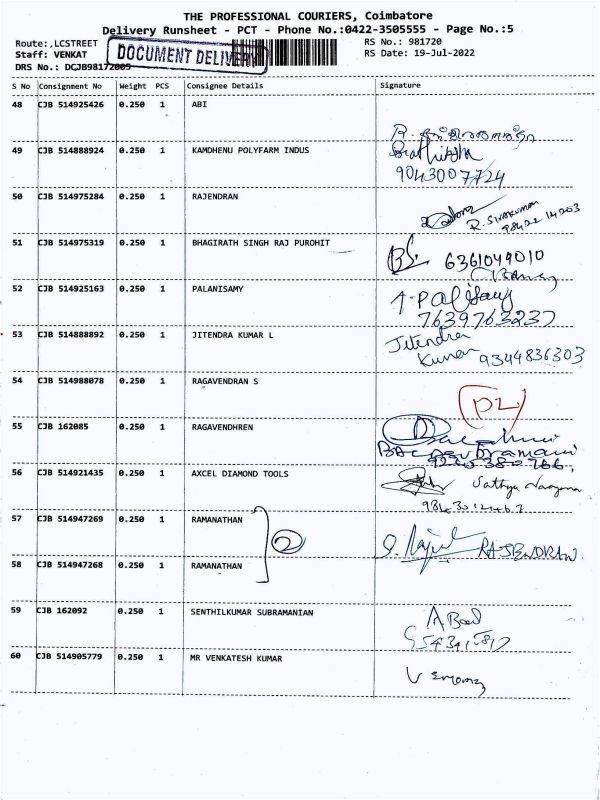 THE PROFESSIONAL COURIERS, Coimbatore
Delivery Runsheet - PCT - Phone No.:0422-3505555 - Page No.:5
Route:,LCSTREET RS No.: 981720
Staff: VENKAT DOCUMENT DELIVERY RS Date: 19-Jul-2022
DRS No.: DCJB98172005
S No Consignment No Weight PCS Consignee Details Signature
48 CJB 514925426 0.250 1 ABI
49 CJB 514888924 0.250 1 KAMDHENU POLYFARM INDUS
9043007724
50 CJB 514975284 0.250 1 RAJENDRAN
R. Sivakumar
98422 14203
51 CJB 514975319 0.250 1 BHAGIRATH SINGH RAJ PUROHIT
6361049010
52 CJB 514925163 0.250 1 PALANISAMY
7639763237
53 CJB 514888892 0.250 1 JITENDRA KUMAR L
Jitendra
Kumar 9344836303
54 CJB 514988078 0.250 1 RAGAVENDRAN S
55 CJB 162085 0.250 1 RAGAVENDHREN
56 CJB 514921435 0.250 1 AXCEL DIAMOND TOOLS
57 CJB 514947269 0.250 1 RAMANATHAN
2
RAJENDRAN
58 CJB 514947268 0.250 1 RAMANATHAN
59 CJB 162092 0.250 1 SENTHILKUMAR SUBRAMANIAN
60 CJB 514905779 0.250 1 MR VENKATESH KUMAR